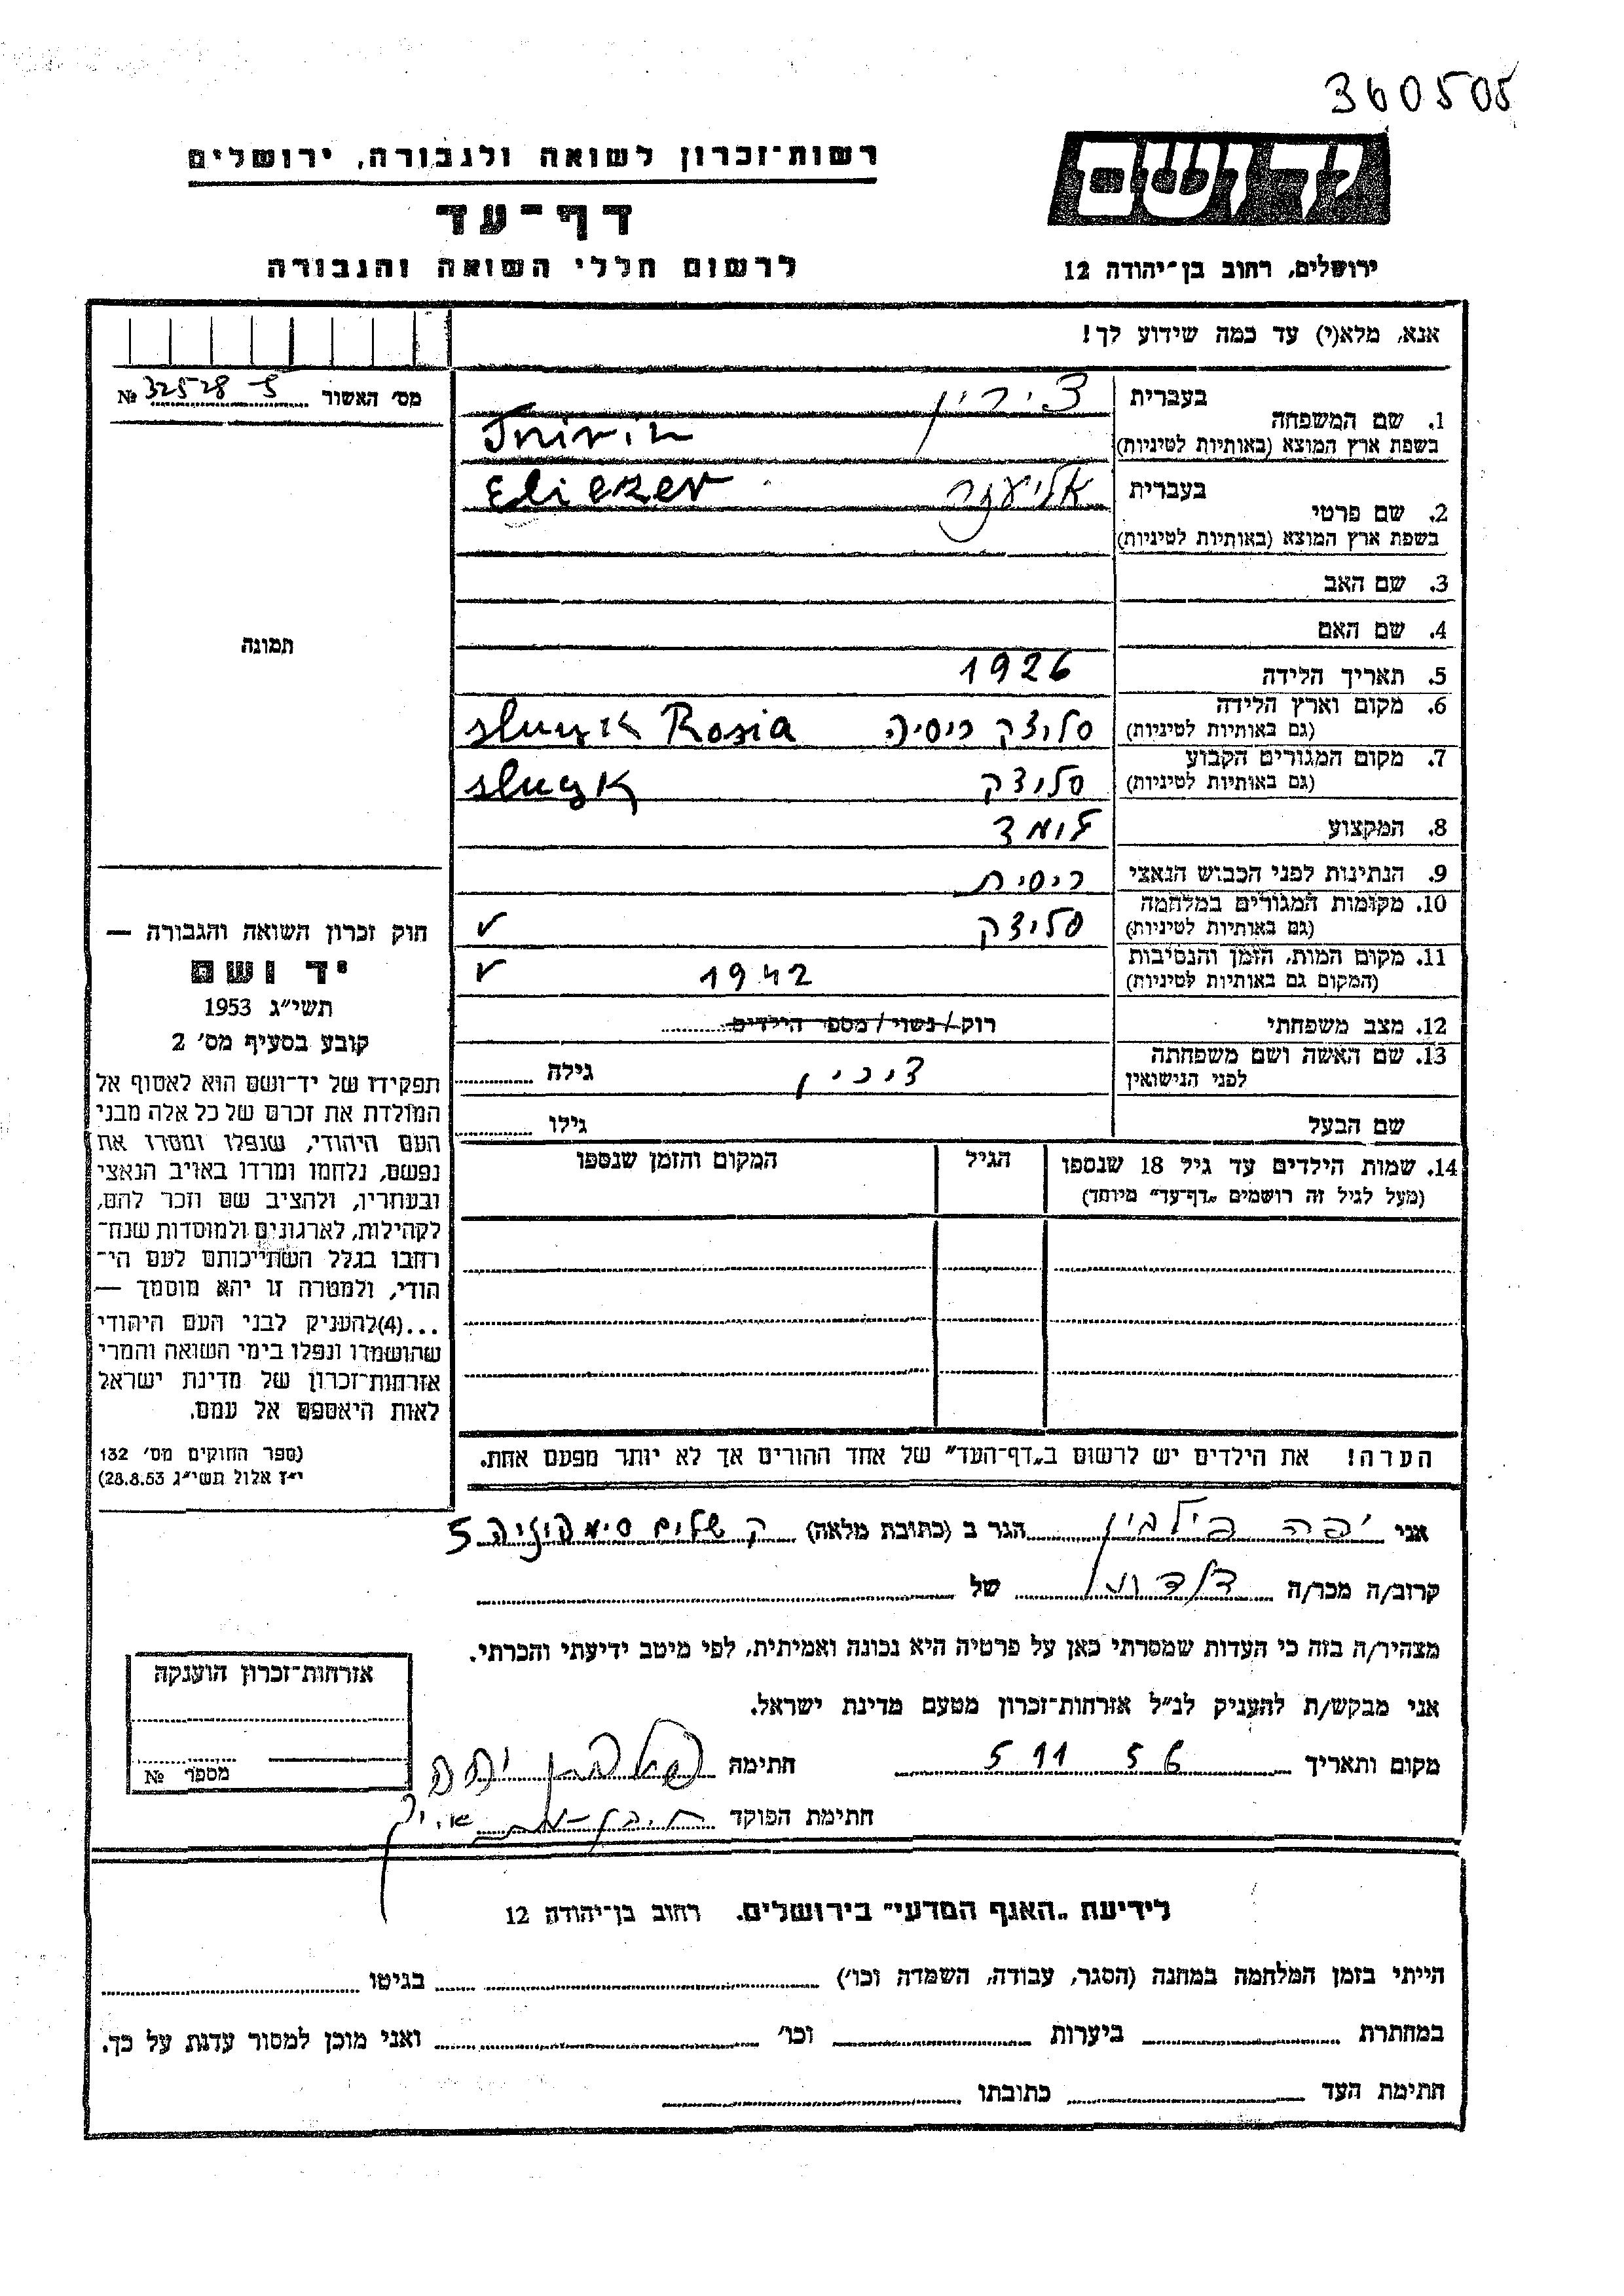 360505
יד ושם
רשות־זכרון לשואה ולגבורה, ירושלים
דף־עד
לרשום חללי השואה והגבורה
ירושלים, רחוב בן־יהודה 12
אנא, מלא(י) עד כמה שידוע לך!
מס׳ האשור № 32528
1. שם המשפחה
בעברית צירין
בשפת ארץ המוצא (באותיות לטיניות)
2. שם פרטי
בעברית אליעזר Eliezer
בשפת ארץ המוצא (באותיות לטיניות)
3. שם האב
4. שם האם
תמונה
5. תאריך הלידה 1926
6. מקום וארץ הלידה סלוצק רוסיה Rosia
(גם באותיות לטיניות)
7. מקום המגורים הקבוע סלוצק
(גם באותיות לטיניות)
8. המקצוע לומד
9. הנתינות לפני הכבוש הנאצי רוסית
10. מקומות המגורים במלחמה סלוצק ✓
(גם באותיות לטיניות)
11. מקום המות, הזמן והנסיבות 1942 ✓
(המקום גם באותיות לטיניות)
12. מצב משפחתי רוק/נשוי/מספר הילדים
13. שם האשה ושם משפחתה
לפני הנישואין
גילה
שם הבעל גילו
14. שמות הילדים עד גיל 18 שנספו
(מעל לגיל זה רושמים „דף־עד״ מיוחד)
הגיל
המקום והזמן שנספו
הערה! את הילדים יש לרשום ב„דף־העד״ של אחד ההורים אך לא יותר מפעם אחת.
חוק זכרון השואה והגבורה —
יד ושם
תשי״ג 1953
קובע בסעיף מס׳ 2
תפקידו של יד־ושם הוא לאסוף אל
המולדת את זכרם של כל אלה מבני
העם היהודי, שנפלו ומסרו את
נפשם, נלחמו ומרדו באויב הנאצי
ובעוזריו, ולהציב שם וזכר להם,
לקהילות, לארגונים ולמוסדות שנח־
רחבו בגלל השתייכותם לעם הי־
הודי, ולמטרה זו יהא מוסמך —
...(4)להעניק לבני העם היהודי
שהושמדו ונפלו בימי השואה והמרי
אזרחות־זכרון של מדינת ישראל
לאות היאספם אל עמם.
(ספר החוקים מס׳ 132
י״ז אלול תשי״ג 28.8.53)
אני יפה הגר ב (כתובת מלאה) 5
קרוב/ה מכר/ה של
מצהיר/ה בזה כי העדות שמסרתי כאן על פרטיה היא נכונה ואמיתית, לפי מיטב ידיעתי והכרתי.
אני מבקש/ת להעניק לנ״ל אזרחות־זכרון מטעם מדינת ישראל.
מקום ותאריך 5 11 56 חתימה
חתימת הפוקד
אזרחות־זכרון הוענקה
מספר №
לידיעת „האגף המדעי״ בירושלים. רחוב בן־יהודה 12
הייתי בזמן המלחמה במחנה (הסגר, עבודה, השמדה וכו׳) בגיטו
במחתרת ביערות וכו׳ ואני מוכן למסור עדות על כך.
חתימת העד כתובתו